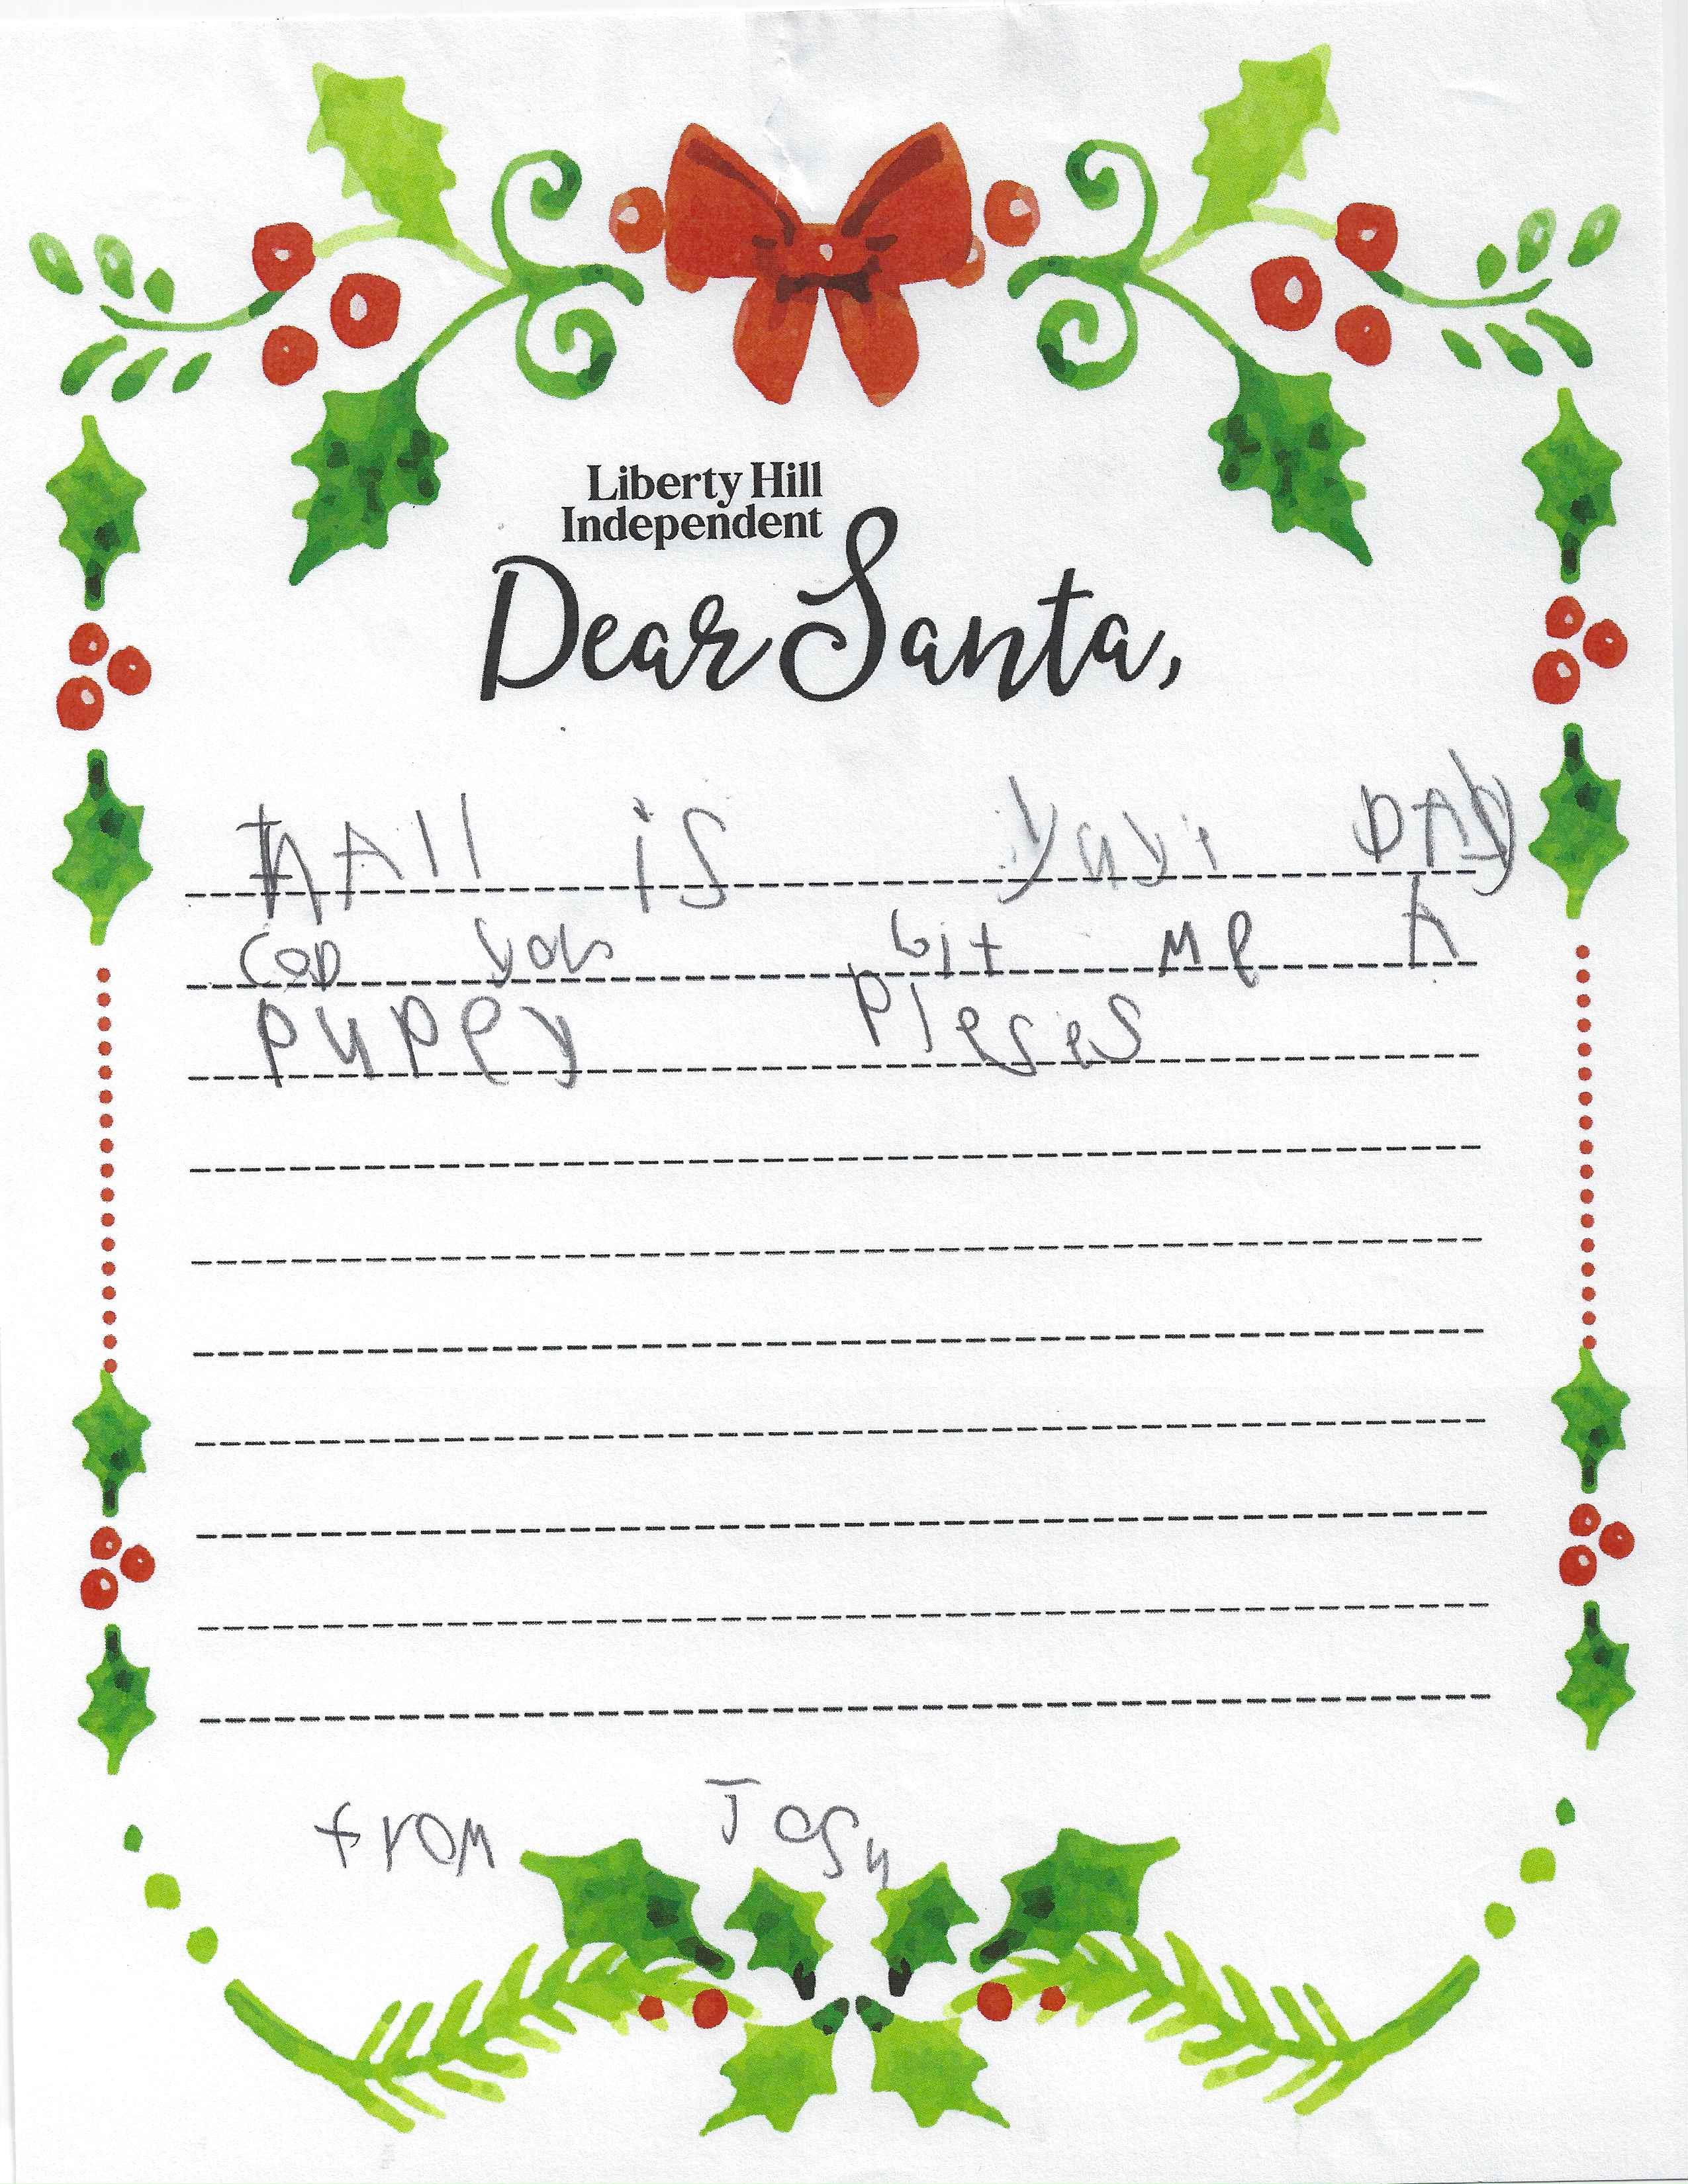 Liberty Hill
Independent
Dear Santa,
hAll is yuyr DAy
cop you bit Me A
puppy pleses
from Josy